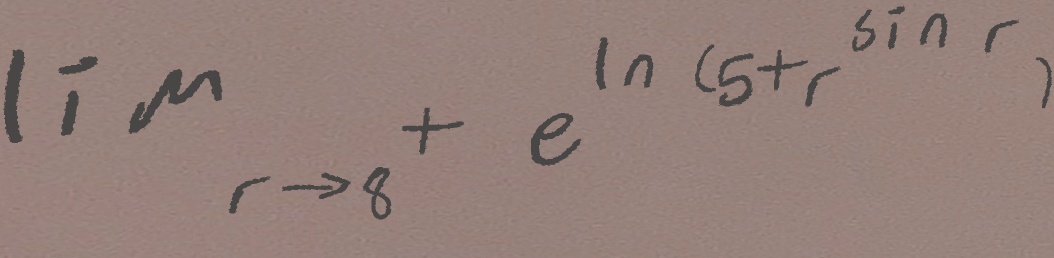 \lim_{r \to 8^+} e^{\ln (5+r^{\sin r})}